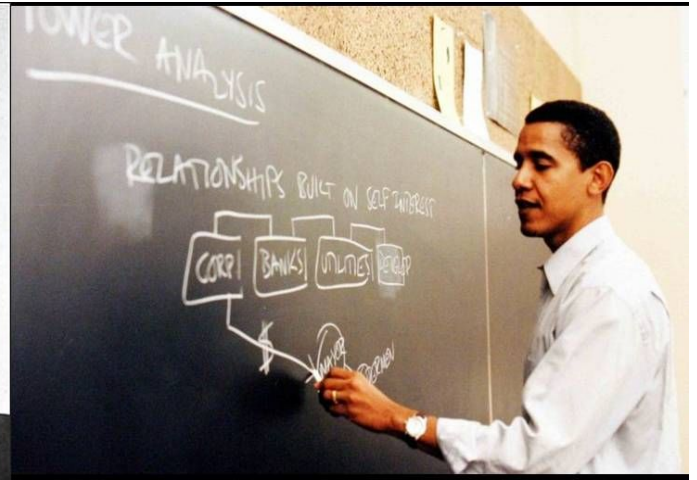 POWER ANALYSIS
RELATIONSHIPS BUILT ON SELF INTEREST
CORP BANKS UTILITIES
$ MAYOR